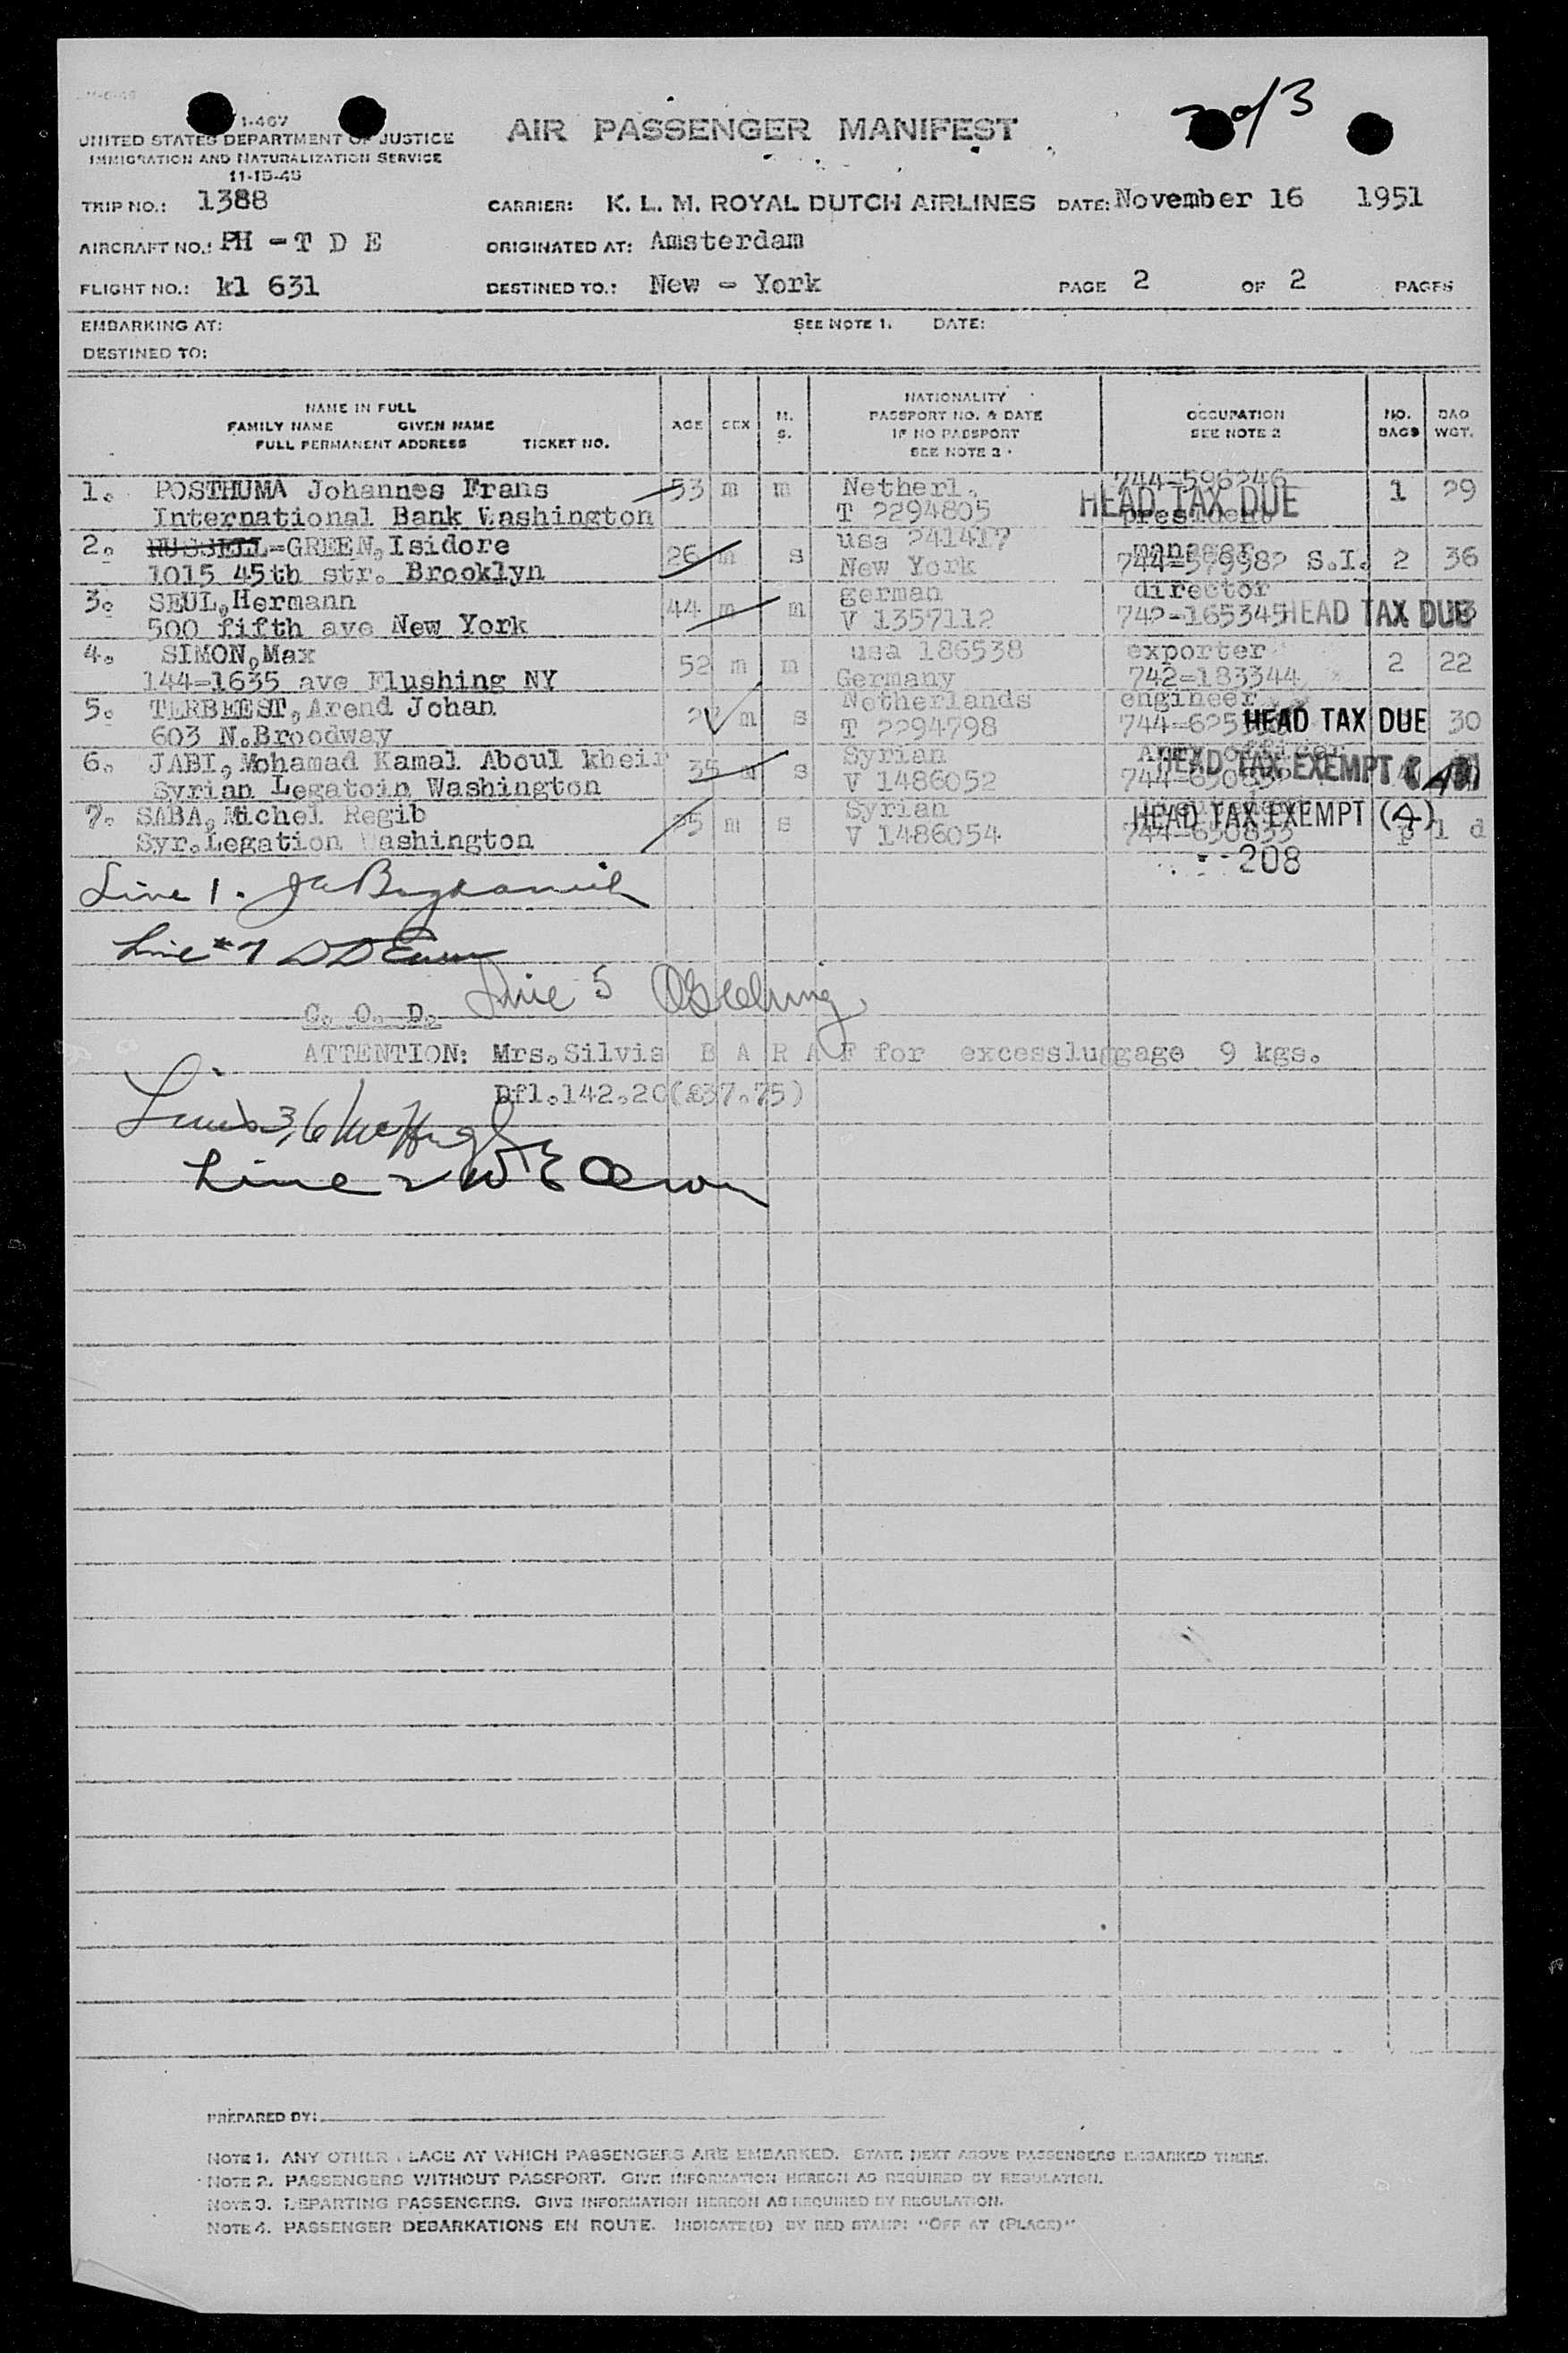 I-467
UNITED STATES DEPARTMENT OF JUSTICE
IMMIGRATION AND NATURALIZATION SERVICE
11-15-45
AIR PASSENGER MANIFEST
of 3
TRIP NO.: 1388 CARRIER: K. L. M. ROYAL DUTCH AIRLINES DATE: November 16 1951
AIRCRAFT NO.: PH - T D E ORIGINATED AT: Amsterdam
FLIGHT NO.: kl 631 DESTINED TO.: New - York PAGE 2 OF 2 PAGES
EMBARKING AT: SEE NOTE 1. DATE:
DESTINED TO:
NAME IN FULL
FAMILY NAME GIVEN NAME
FULL PERMANENT ADDRESS TICKET NO.
AGE SEX M. S.
NATIONALITY
PASSPORT NO. & DATE
IF NO PASSPORT
SEE NOTE 3
OCCUPATION
SEE NOTE 2
NO. BAGS
BAG WGT.
1. POSTHUMA Johannes Frans 53 m m Netherl. 744-596246 1 29
International Bank Washington T 2294805 president HEAD TAX DUE
2. RUSSELL-GREEN, Isidore 26 m s usa 241417 manager 2 36
1015 45th str. Brooklyn New York 744-579982 S.I.
3. SEUL, Hermann 44 m m german director
500 fifth ave New York V 1357112 742-165345 HEAD TAX DUE
4. SIMON, Max 52 m m usa 186538 exporter 2 22
144-1635 ave Flushing NY Germany 742-183344
5. TERBEEST, Arend Johan m s Netherlands engineer
603 N.Broodway T 2294798 HEAD TAX DUE 30
6. JABI, Mohamad Kamal Aboul kheir 35 m s Syrian
Syrian Legatoin Washington V 1486052 HEAD TAX EXEMPT
7. SABA, Michel Regib m s Syrian
Syr.Legation Washington V 1486054 744-650833 HEAD TAX EXEMPT (4) p l d
208
Line 1.
Line #7
C. O. D. Line 5
ATTENTION: Mrs.Silvis B A R A F for excessluggage 9 kgs.
Dfl.142.20(£37.75)
Lines 3,6
Line 2
PREPARED BY:
NOTE 1. ANY OTHER PLACE AT WHICH PASSENGERS ARE EMBARKED. STATE NEXT ABOVE PASSENGERS EMBARKED THERE.
NOTE 2. PASSENGERS WITHOUT PASSPORT. GIVE INFORMATION HEREON AS REQUIRED BY REGULATION.
NOTE 3. DEPARTING PASSENGERS. GIVE INFORMATION HEREON AS REQUIRED BY REGULATION.
NOTE 4. PASSENGER DEBARKATIONS EN ROUTE. INDICATE(D) BY RED STAMP: "OFF AT (PLACE)"